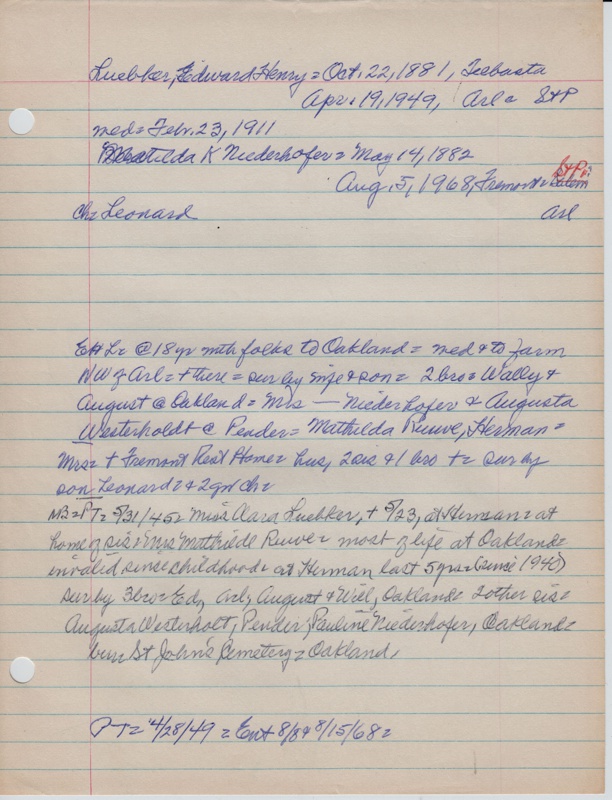 Luebker, Edward Henry = Oct. 22, 1881,
Apr. 19, 1949, Arl = StP
med = Febr. 23, 1911
Matilda K Niederhofer = May 14, 1882
StP
Aug. 5, 1968, Fremont = Salem
Ch = Leonard
Arl
EHL = @ 18 yr with folks to Oakland = med & to farm
NW of Arl = + there = sur by wife & son = 2 bro = Wally &
August @ Oakland = Mrs — Niederhofer & Augusta
Westerholdt @ Pender = Mathilda Ruwe, Herman =
Mrs = + Fremont Rest Home = hus, 2 sis & 1 bro += sur by
son Leonard = & 2 gr ch =
NB = PT = 5/31/45 = Miss Aara Luebker, + 5/23, at Herman = at
home of sis = Mrs Mathilde Ruwe = most of life at Oakland =
invalid since childhood = at Herman last 5 yrs = (since 1940)
sur by 3 bro = Ed, Arl, August & Will, Oakland = 2 other sis =
Augusta Westerholt, Pender, Pauline Niederhofer, Oakland =
bur St John's Cemetery = Oakland.
PT = 4/28/49 = Ent 8/8 & 8/15/68 =